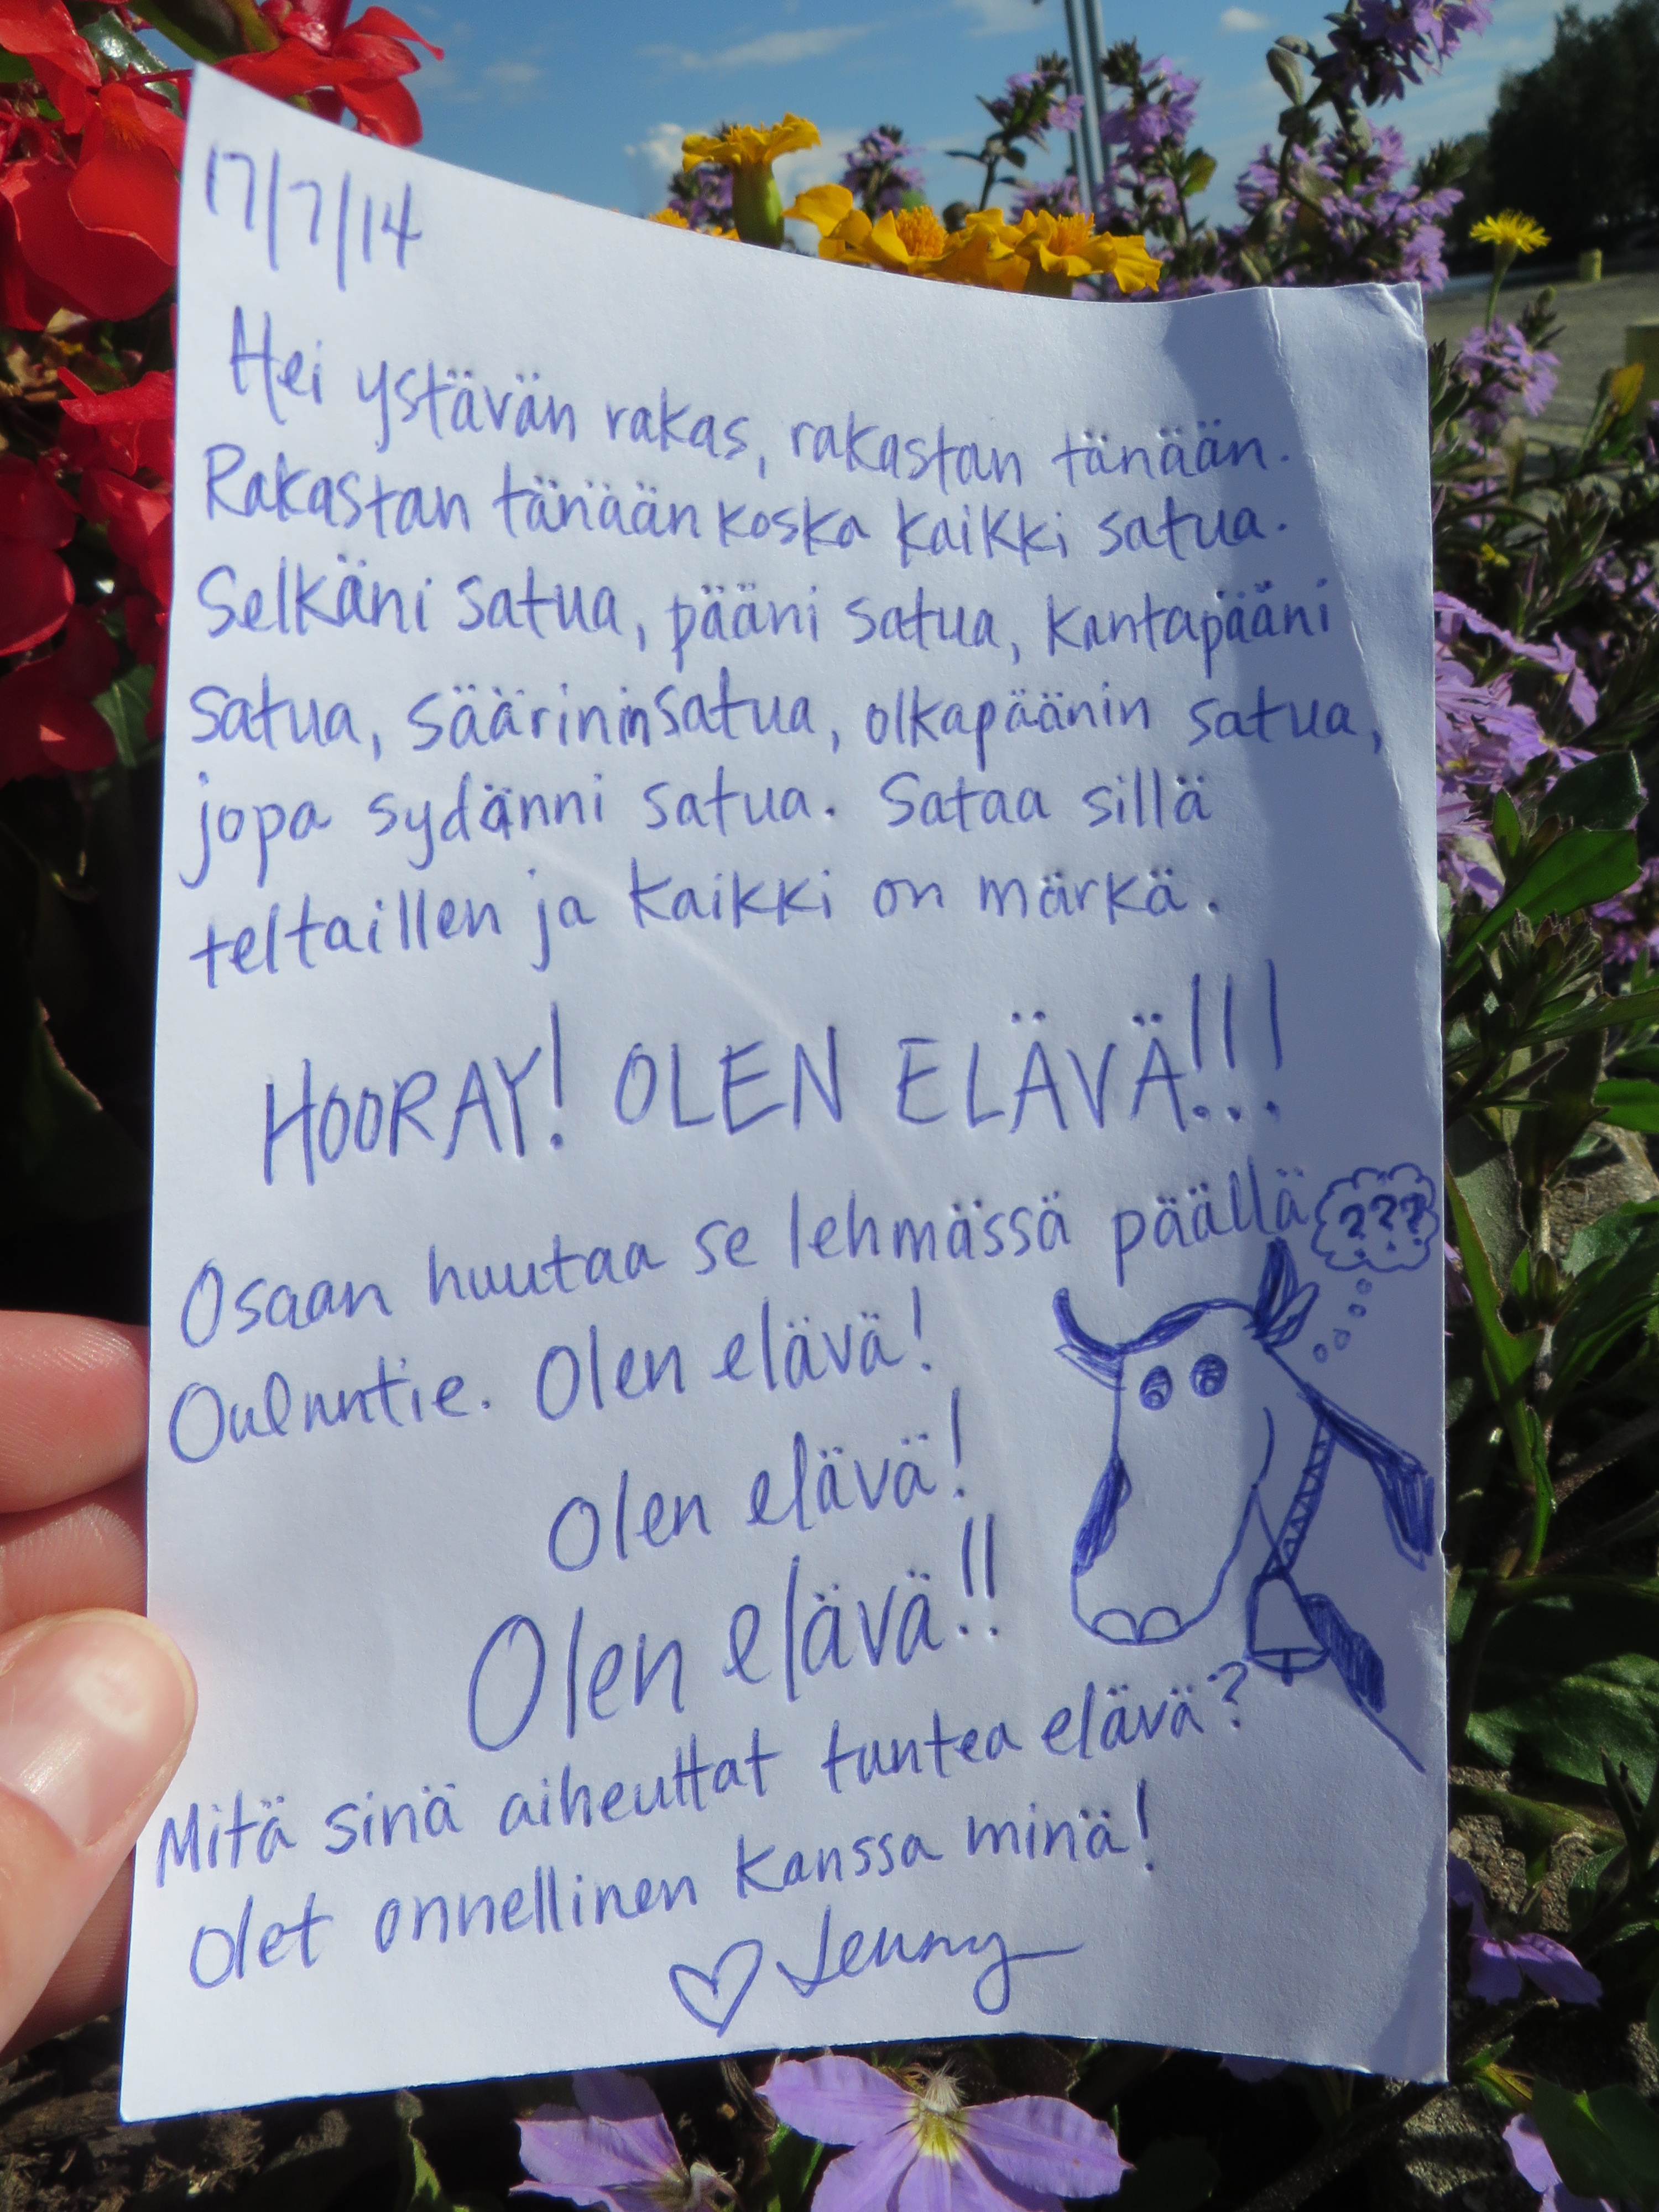 17/7/14
Hei ystävän rakas, rakastan tänään.
Rakastan tänään koska kaikki satua.
Selkäni satua, pääni satua, kantapääni
satua, säärinin satua, olkapäänin satua,
jopa sydänni satua. Sataa sillä
teltaillen ja kaikki on märkä.
HOORAY! OLEN ELÄVÄ!!!
Osaan huutaa se lehmässä päällä
???
Oulnntie. Olen elävä!
Olen elävä!
Olen elävä!!
Mitä sinä aiheuttat tuntea elävä?
Olet onnellinen kanssa minä!
♡ Jenny